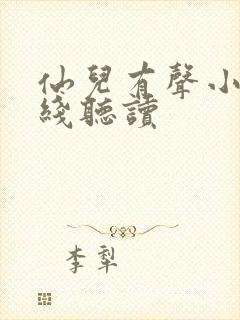 仙兒有聲小
綫聽讀
李犁